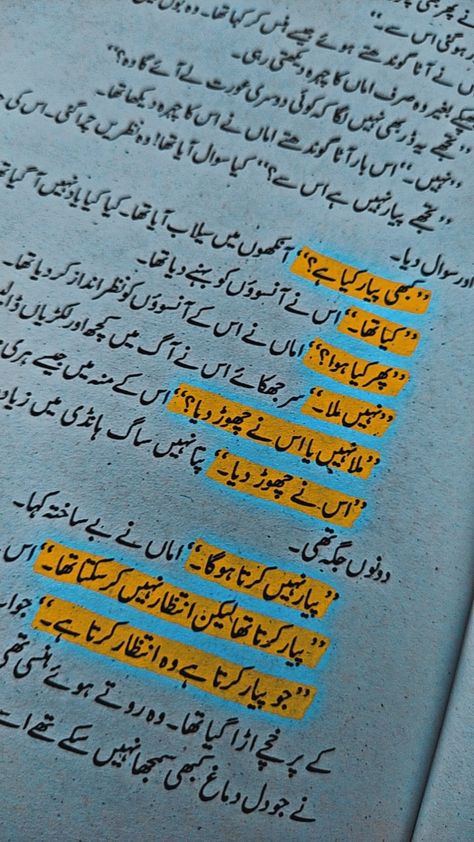 ہو گئی اس سے۔"
نے آٹا گوندھتے ہوئے جیسے ہنس کر کہا تھا۔ وہ
بغیر وہ صرف اماں کا چہرہ دیکھتی رہی۔
"تجھے یہ ڈر بھی نہیں لگا کہ کوئی دوسری عورت لے آئے گا وہ؟"
"نہیں۔" اس بار آٹا گوندھتے اماں نے اس کا چہرہ دیکھا تھا۔
"تجھے پیار نہیں ہے اس سے؟" کیا سوال آیا تھا! وہ نظریں چرا گئی۔ اس کی
اور سوال دیا۔
"کبھی پیار کیا ہے؟" آنکھوں میں سیلاب آیا تھا۔ کیا کیا یاد نہیں آ گیا تھا
"کیا تھا۔" اس نے آنسوؤں کو بہنے دیا تھا۔
"پھر کیا ہوا؟" اماں نے اس کے آنسوؤں کو نظر انداز کر دیا تھا۔
"نہیں ملا۔" سر جھکائے اس نے آگ میں کچھ اور لکڑیاں
"ملا نہیں یا اس نے چھوڑ دیا؟" اس کے منہ میں جیسے ہری
"اس نے چھوڑ دیا۔" پتا نہیں ساگ ہانڈی میں
دونوں جگہ تھی۔
"پیار نہیں کرتا ہوگا۔" اماں نے بے ساختہ کہا۔
"پیار کرتا تھا لیکن انتظار نہیں کر سکتا تھا۔" اس
"جو پیار کرتا ہے وہ انتظار کرتا ہے۔"
کے پرخچے اڑا گیا تھا۔ وہ روتے ہوئے ہنسی تھی
نے جو دل و دماغ کبھی سمجھا نہیں سکے تھے